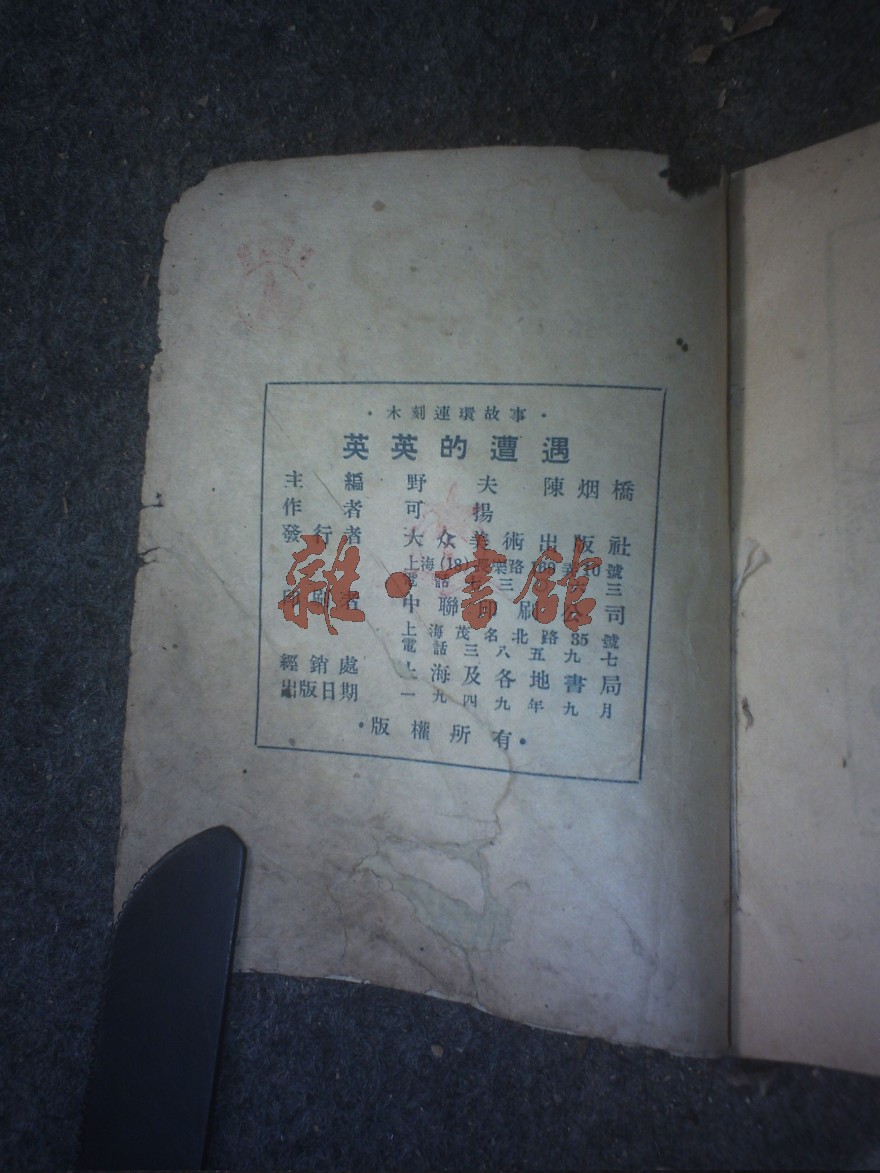 ·木刻連環故事·
英英的遭遇
主編 野夫 陳烟橋
作者 可揚
發行者 大众美術出版社
上海(18) 樂路 號
電話 三 三
印刷者 中聯印刷公司
上海茂名北路35號
電話三八五九七
經銷處 上海及各地書局
出版日期 一九四九年九月
·版權所有·
雜·書館